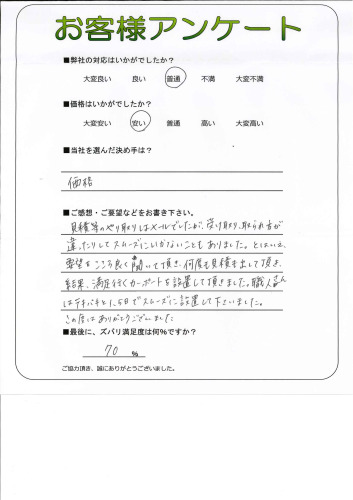 お客様アンケート
■弊社の対応はいかがでしたか?
大変良い 良い 普通 不満 大変不満
■価格はいかがでしたか?
大変安い 安い 普通 高い 大変高い
■当社を選んだ決め手は?
価格
■ご感想・ご要望などをお書き下さい。
見積等のやり取りはメールでしたが、受け取り、取られ方が
違ったりしてスムーズにいかないこともありました。とはいえ、
要望をこころ良く聞いて頂き、何度も見積を出して頂き、
結果、満足行くカーポートを設置して頂きました。職人さん
はテキパキと1.5日でスムーズに設置して下さいました。
この度はありがとうございました
■最後に、ズバリ満足度は何%ですか?
70 %
ご協力頂き、誠にありがとうございました。